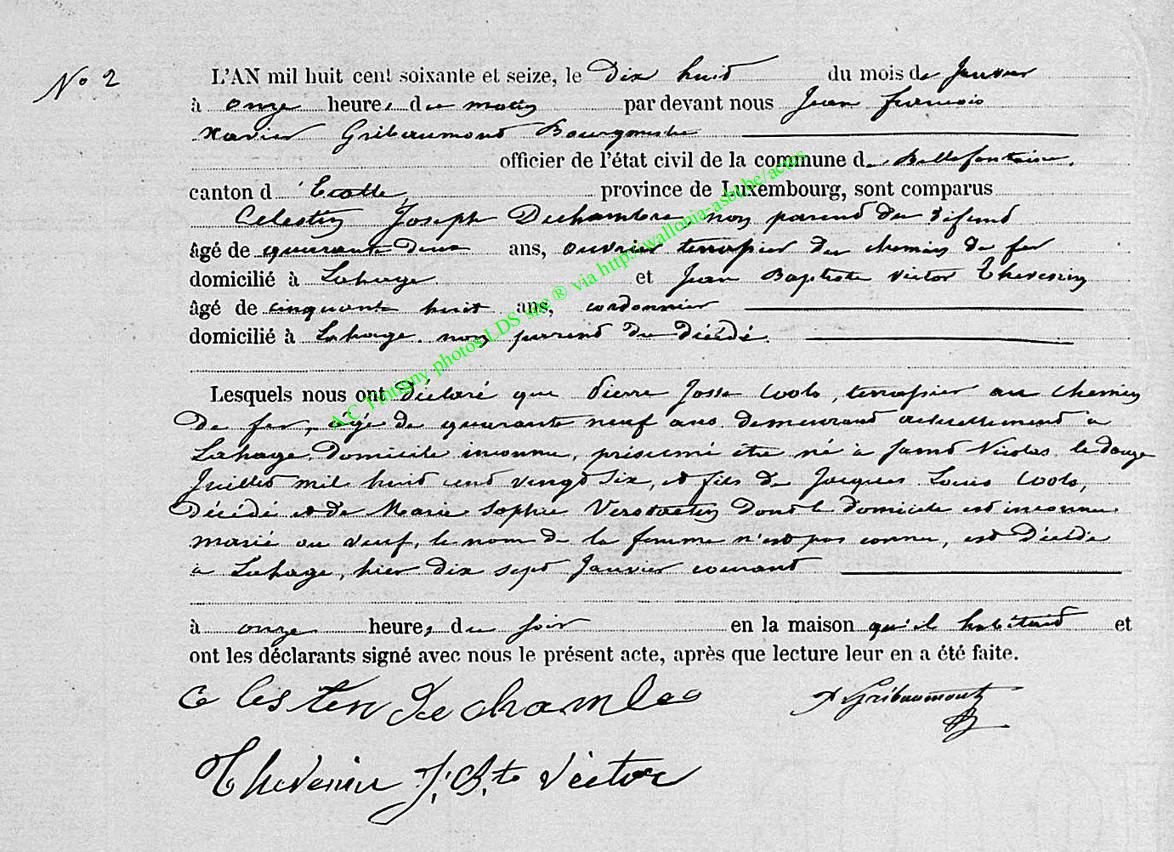 No 2
L'AN mil huit cent soixante et seize, le Dix huit du mois de Janvier
à onze heures du matin par devant nous Jean françois
Xavier Gribaumont Bourgmestre
officier de l'état civil de la commune de Bellefontaine,
canton d'Etalle, province de Luxembourg, sont comparus
Celestin Joseph Dechambre non parend du défunt
âgé de quarant deux ans, ouvrier terrassier du chemin de fer
domicilié à Lahage et Jean Baptiste Victor Thevenin
âgé de cinquante huit ans, cordonnier
domicilié à Lahage non parend du Décédé.
Lesquels nous ont Déclaré que Pierre Josse Cools, terrassier au chemin
De fer, âgé de quarante neuf ans demeurant actuellement à
Lahage, Domicile inconnu, présumé être né à Saint Nicolas le douze
Juillet mil huit cent vingt six, et fils de Jacques Louis Cools,
Décédé et de Marie Sophie Dont le Domicile est inconnu
marié ou veuf, le nom de la femme n'est pas connu, est Décédé
à Lahage, hier dix sept Janvier courant
à onze heures du soir en la maison qu'il habitait et
ont les déclarants signé avec nous le présent acte, après que lecture leur en a été faite.
Celesten Dechambre
X Gribaumont
Thevenin J. B.te Victor
A.C Tintigny photos LDS site ® via http://wallonia-asbl.be/actes